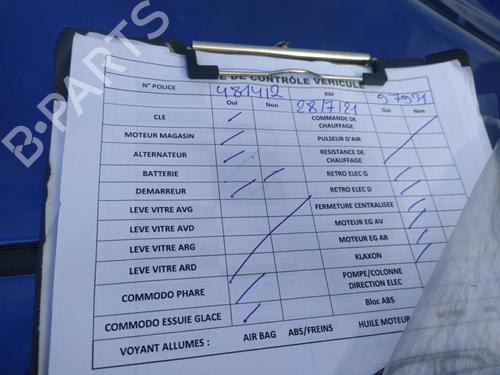 E DE CONTRÔLE VEHICULE
N° POLICE 481412 KM 97971
Oui Non 28/7/21 Oui Non
CLE COMMANDE DE CHAUFFAGE
MOTEUR MAGASIN PULSEUR D'AIR
ALTERNATEUR RESISTANCE DE CHAUFFAGE
BATTERIE RETRO ELEC G
DEMARREUR RETRO ELEC D
LEVE VITRE AVG FERMETURE CENTRALISEE
LEVE VITRE AVD MOTEUR EG AV
LEVE VITRE ARG MOTEUR EG AR
LEVE VITRE ARD KLAXON
COMMODO PHARE POMPE/COLONNE DIRECTION ELEC
COMMODO ESSUIE GLACE Bloc ABS
VOYANT ALLUMES : AIR BAG ABS/FREINS HUILE MOTEUR
B-PARTS